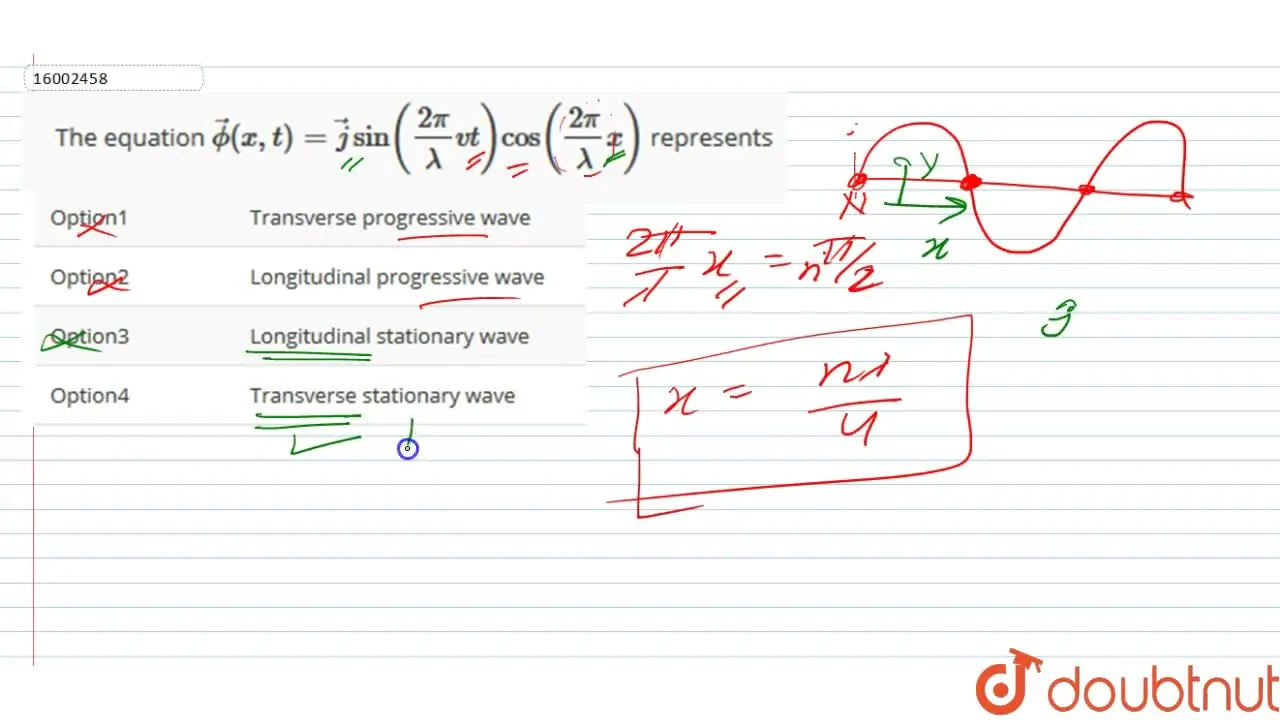 16002458
The equation $\vec{\phi}(x, t) = \vec{j} \sin\left(\frac{2\pi}{\lambda} vt\right) \cos\left(\frac{2\pi}{\lambda} x\right)$ represents
Option1 Transverse progressive wave
Option2 Longitudinal progressive wave
Option3 Longitudinal stationary wave
Option4 Transverse stationary wave
y
N
x
$\frac{2\pi}{\lambda} x = n\pi/2$
$\hat{j}$
$x = \frac{n\lambda}{4}$
doubtnut